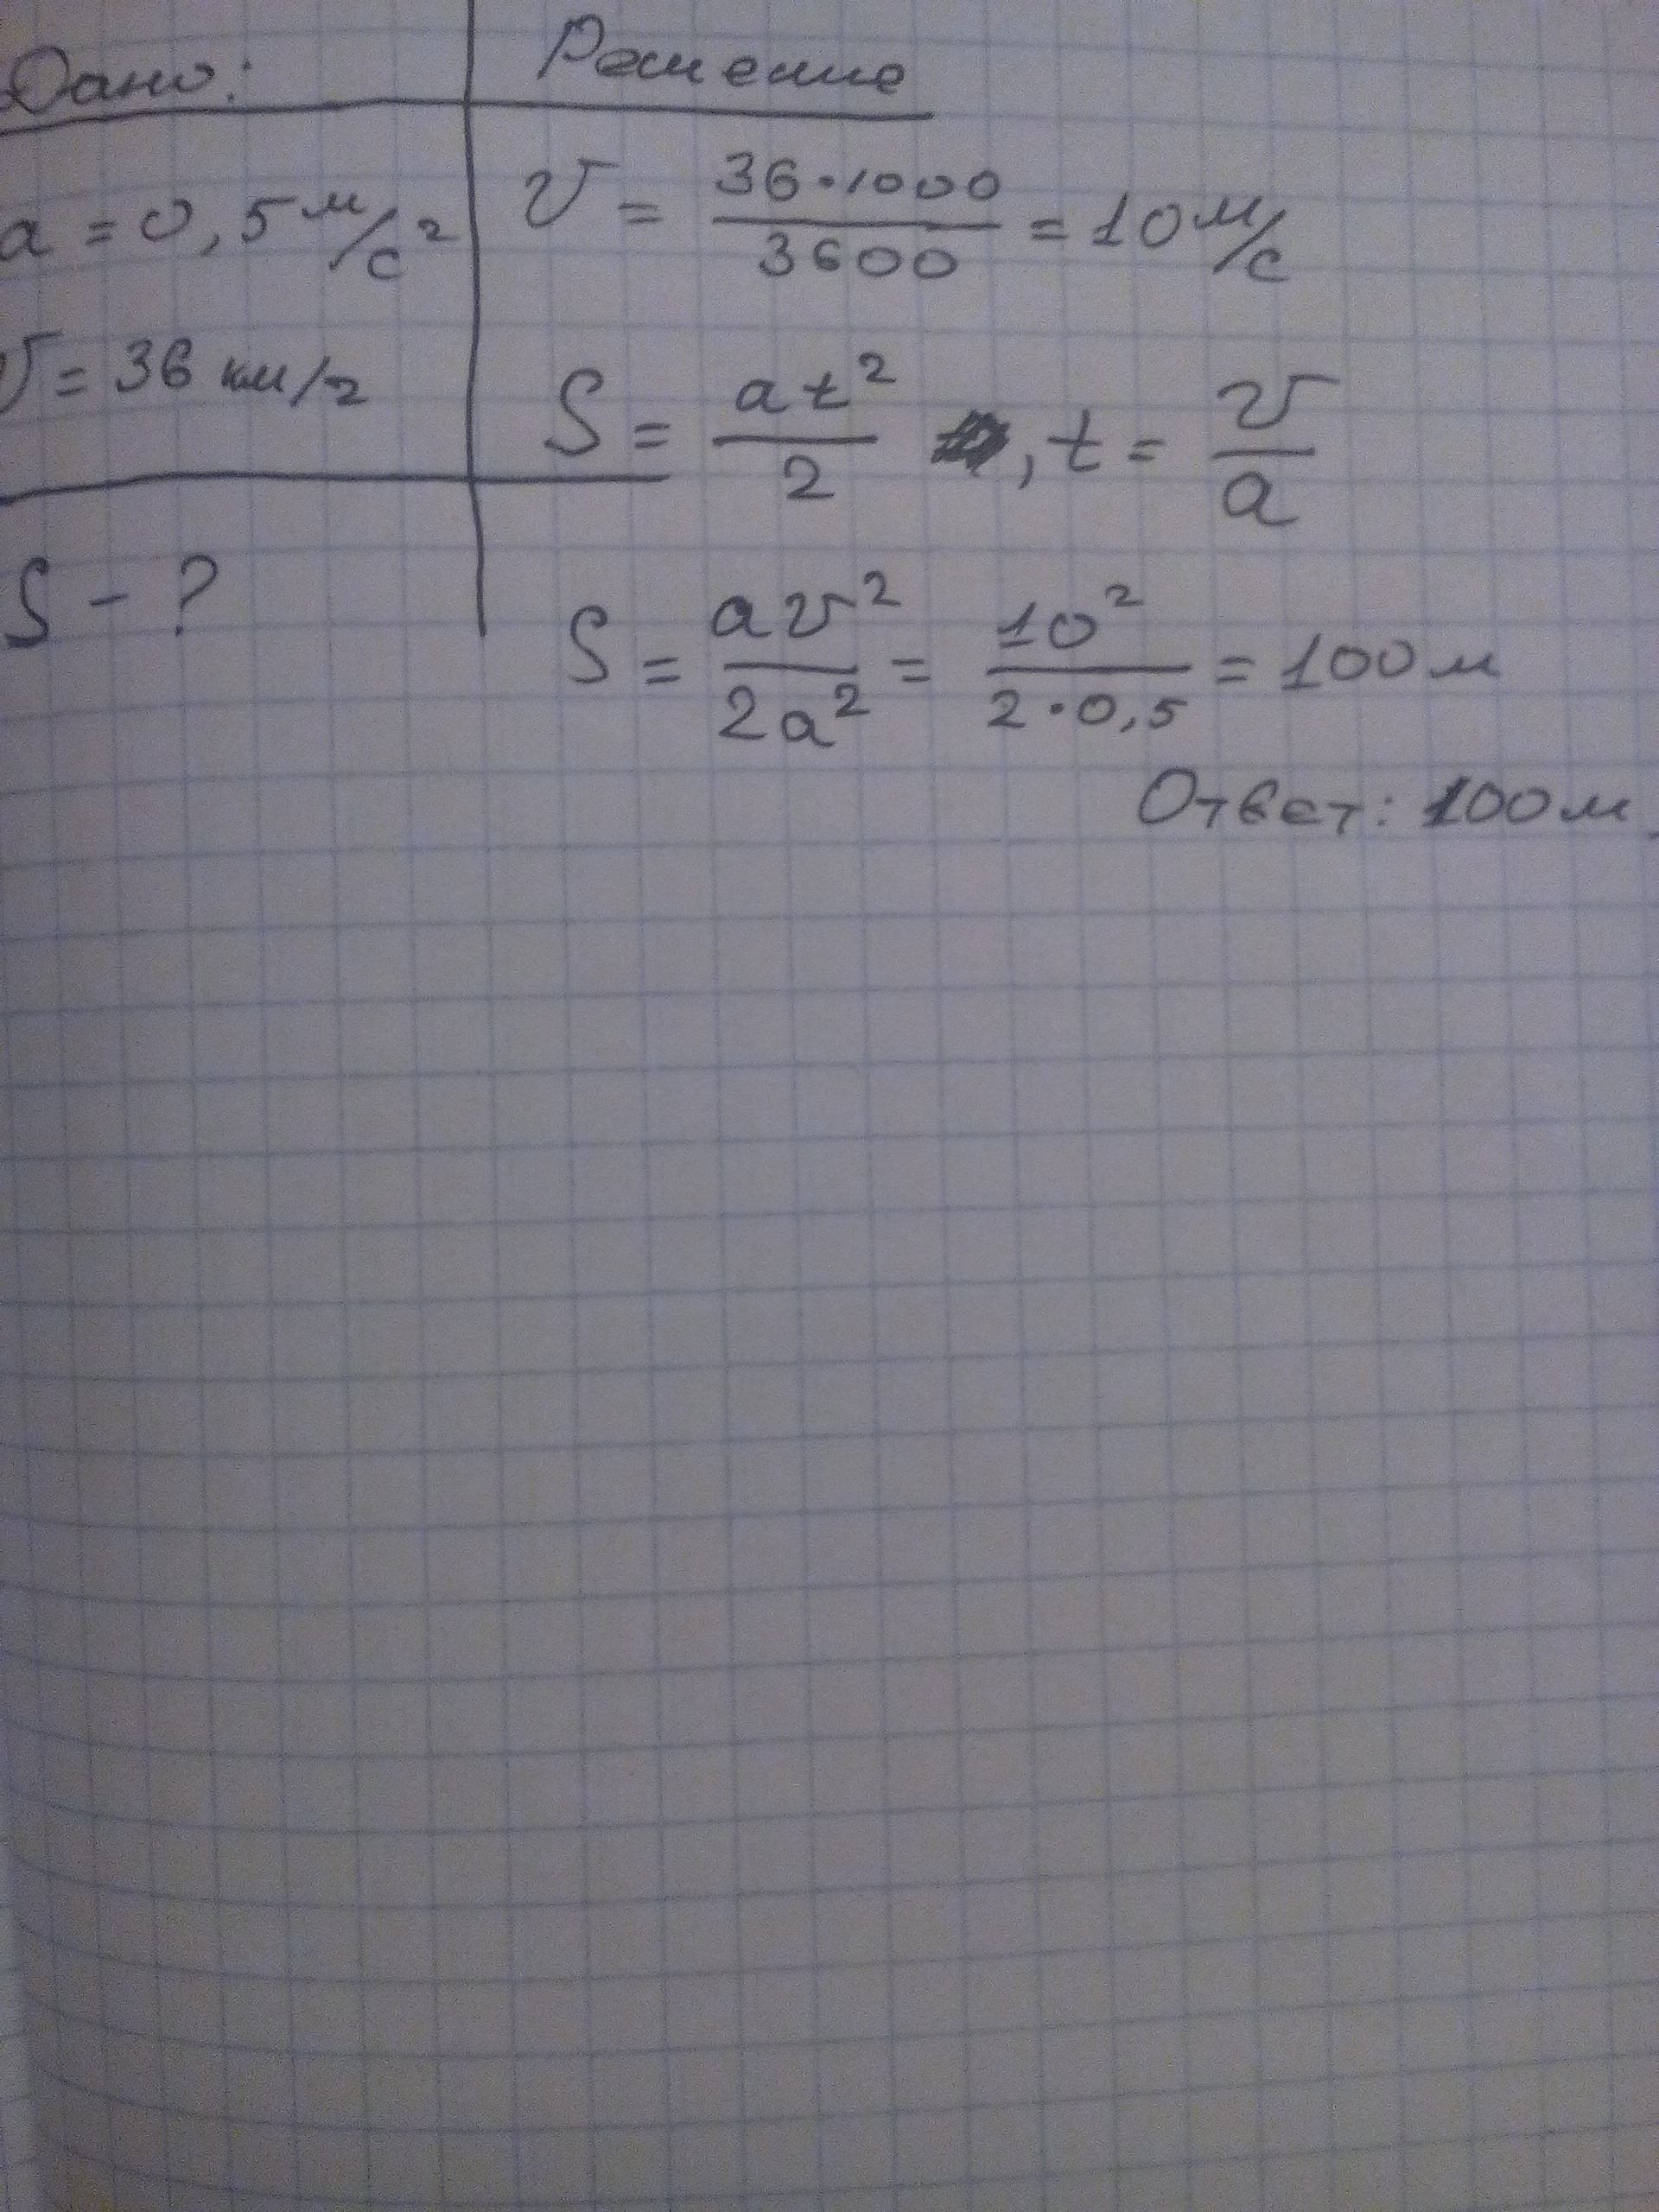 Дано:
a = 0,5 м/с²
v = 36 км/ч
S - ?
Решение
v = 36·1000/3600 = 10 м/с
S = at²/2 , t = v/a
S = av²/2a² = 10²/2·0,5 = 100 м
Ответ: 100 м.